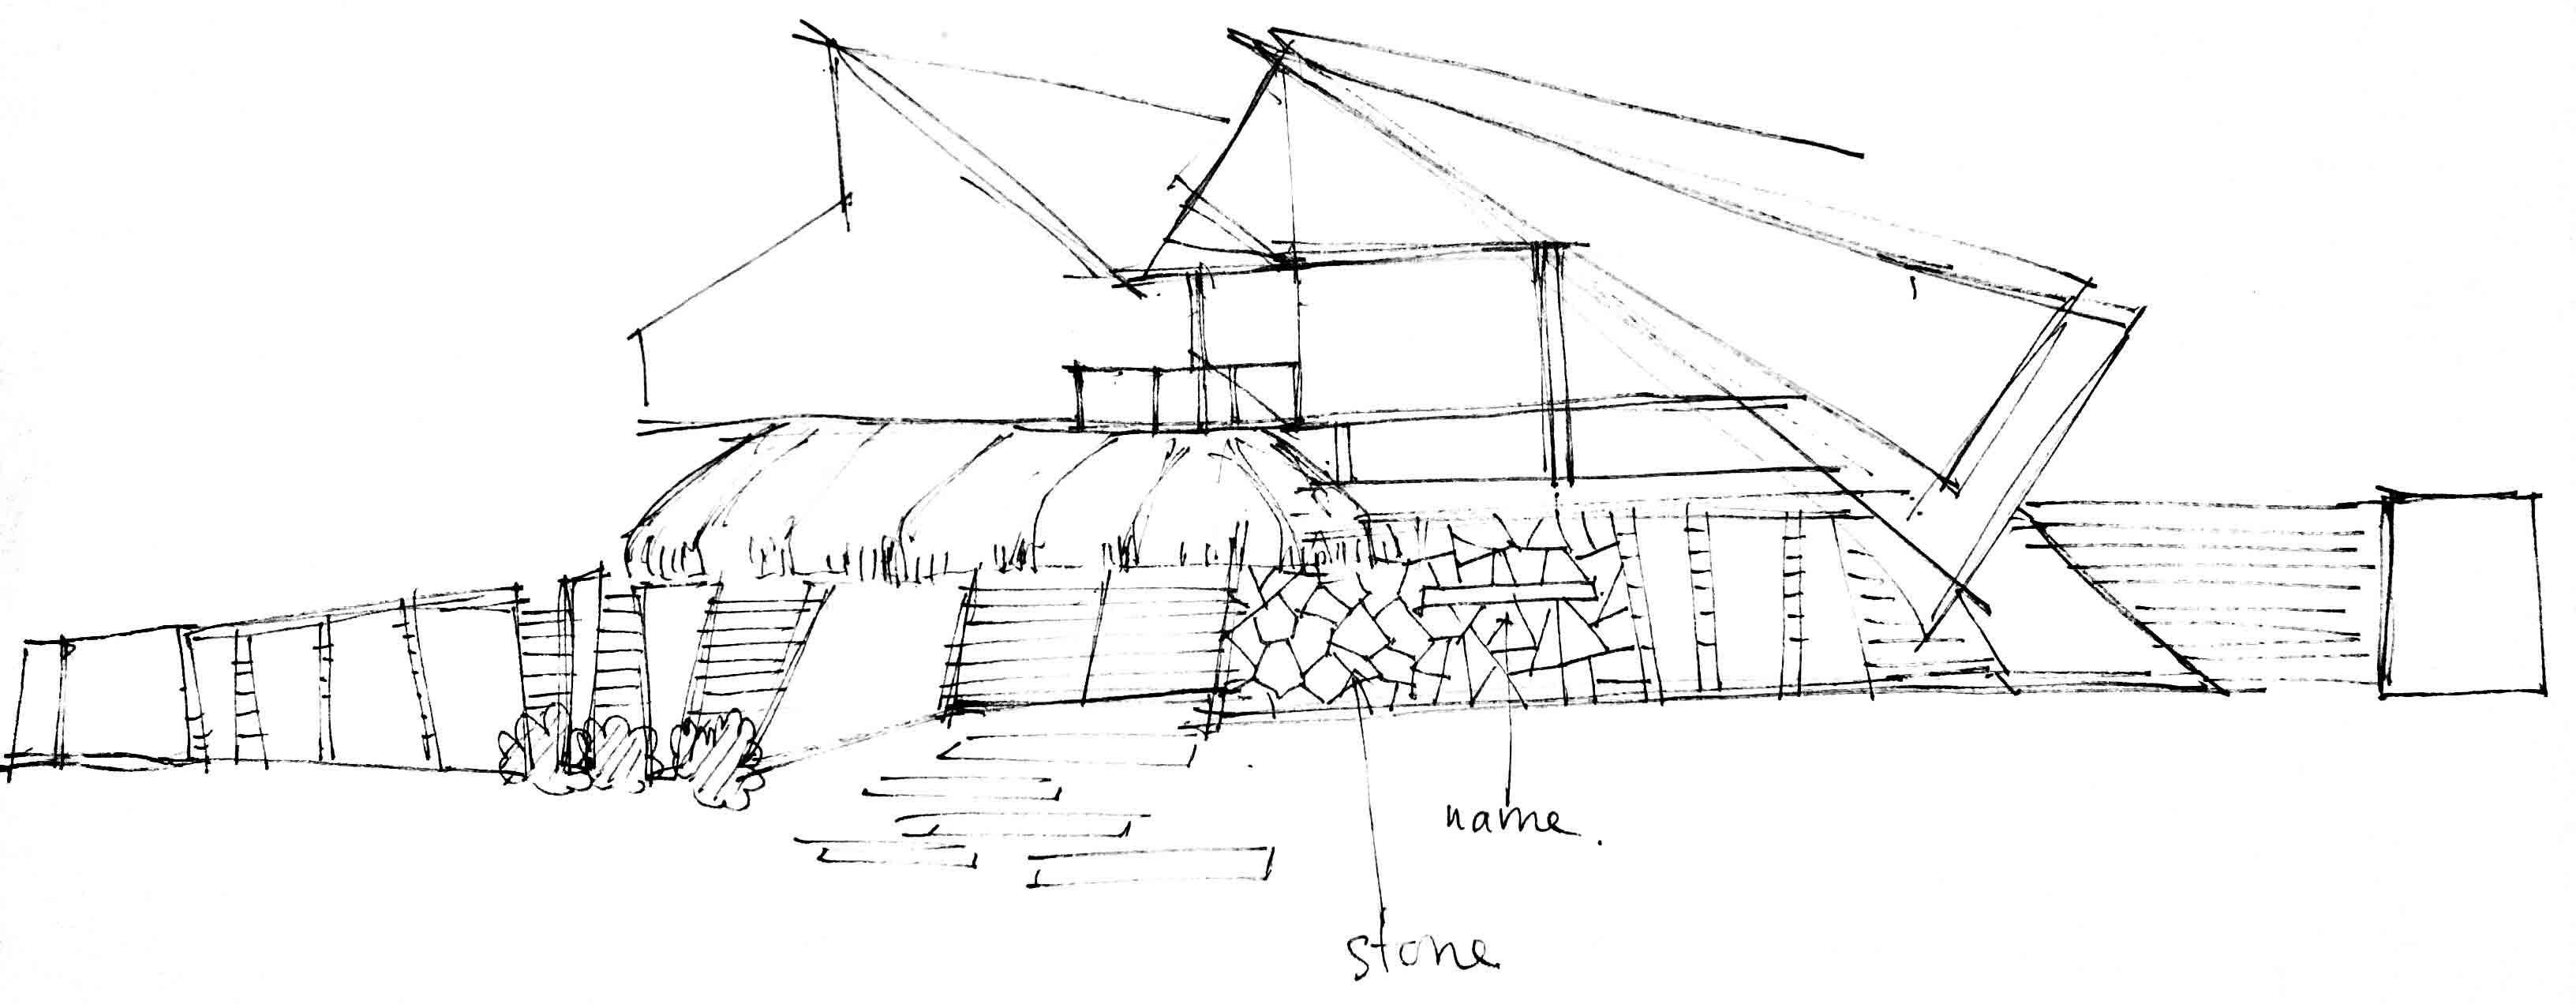 name.
stone